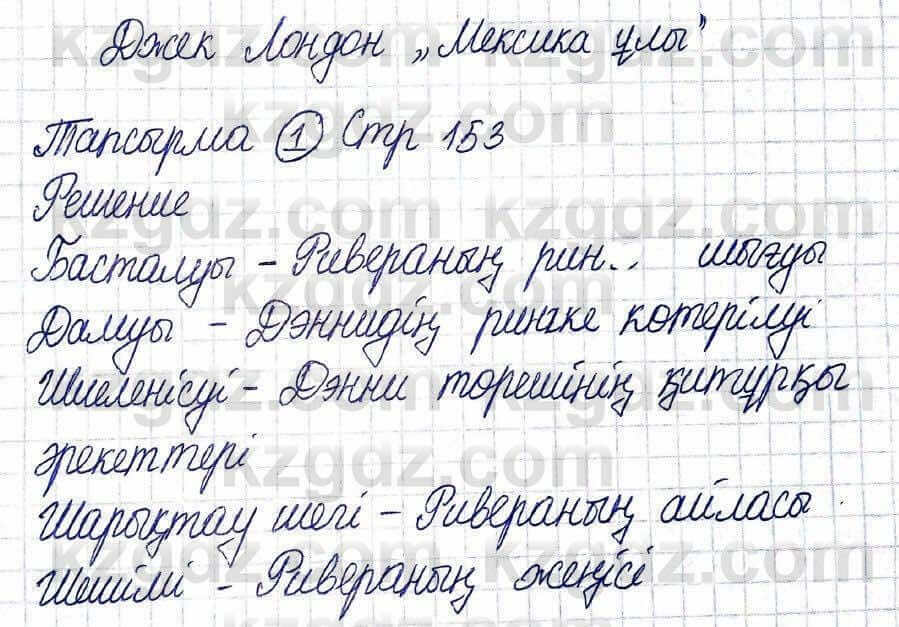 Джек Лондон „Мексика ұлы"
Тапсырма ① Стр 153
Решение
Басталуы - Ривераның рин.. шығуы
Дамуы - Дэннидің рингке көтерілуі
Шиеленісуі - Дэнни төрешінің қитұрқы
әрекеттері
Шарықтау шегі - Ривераның айласы.
Шешімі - Ривераның жеңісі